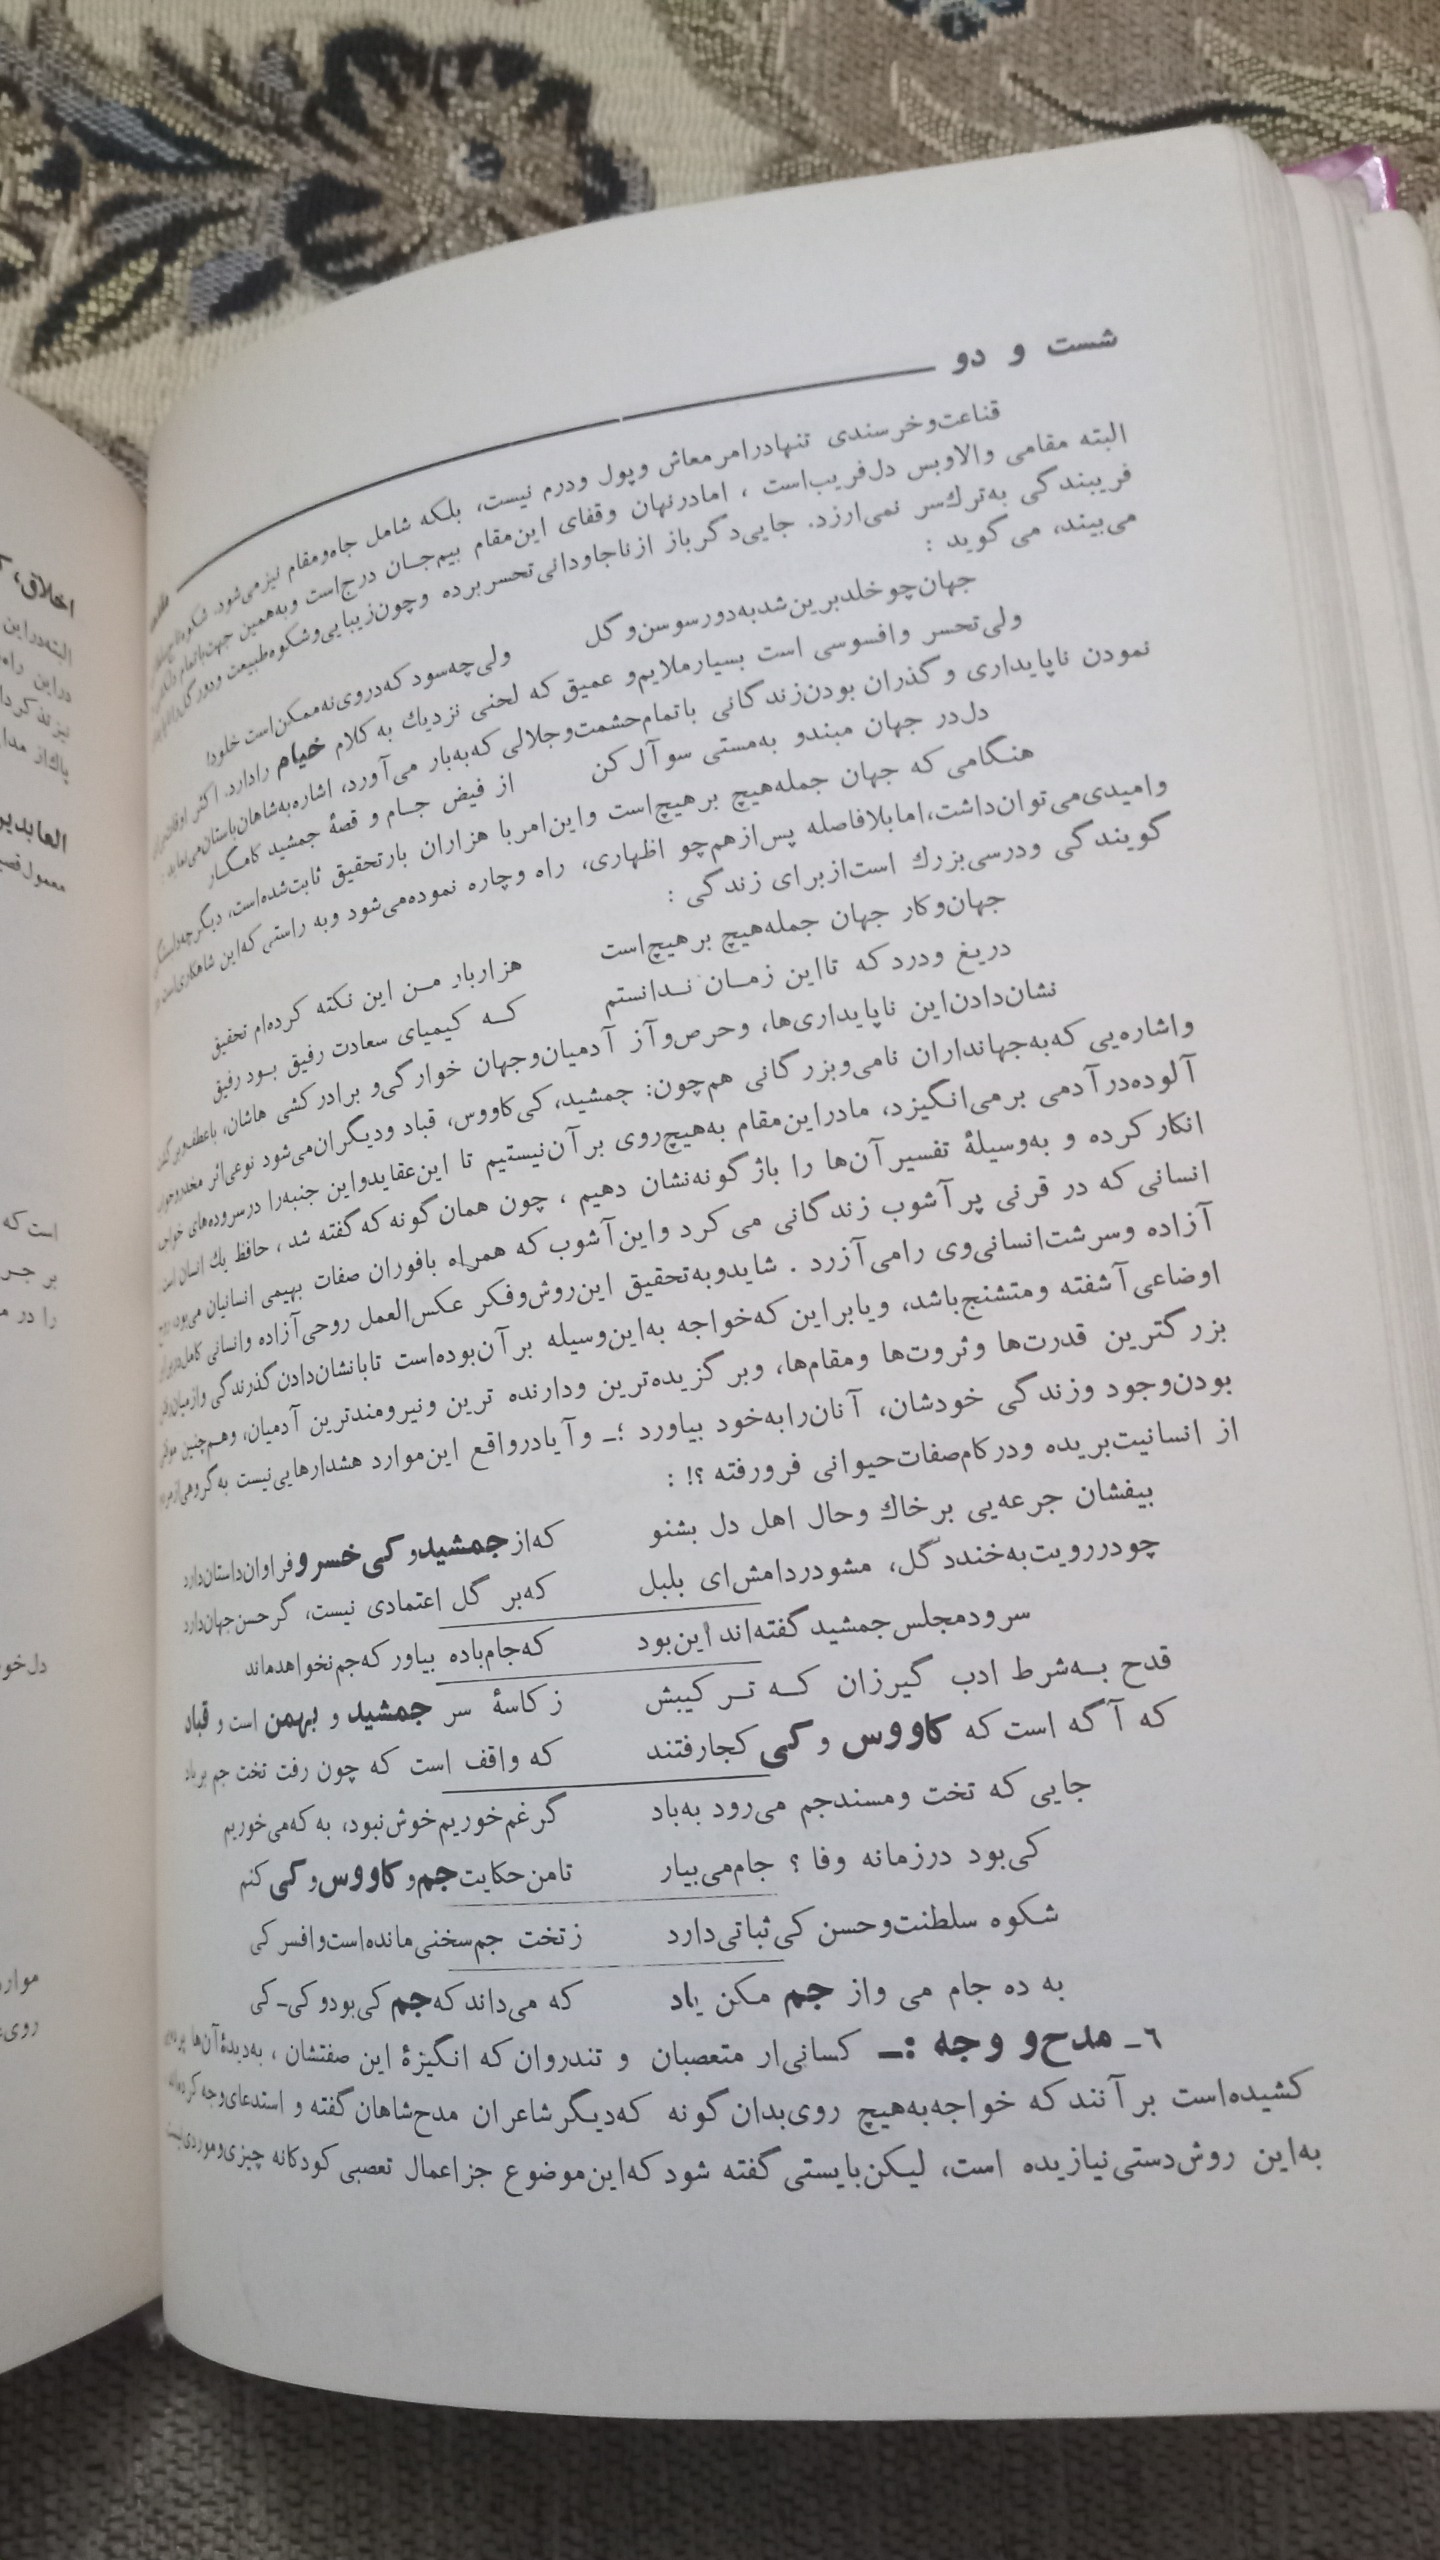 اخلاق،
البته‌دراین
دراین راه
نیز تذ کردا
پاک‌از مدا
العابدین
معمول‌قص
است که
بر جر
را در
دل‌خو
موارد
روی
شست و دو
قناعت‌وخرسندی تنهادرامرمعاش وپول ودرم نیست، بلکه شامل جاه‌ومقام نیزمی‌شود. شکوه
البته مقامی والاوبس دل‌فریب‌است ، امادرنهان وقفای این‌مقام بیم‌جـان درج‌است وبه‌همین جهت‌باتمام
فریبندگی به‌ترك‌سر نمی‌ارزد. جایی‌دگرباز ازناجاودانی‌تحسربرده وچون‌زیبایی‌وشکوه‌طبیعت ودورگل‌را
می‌بیند، می‌گوید :
جهان‌چوخلدبرین‌شدبه‌دورسوسن‌وگل ولی‌چه‌سود که‌دروی‌نه‌ممکن‌است خلود!
ولی‌تحسر وافسوسی است بسیارملایم‌و عمیق که لحنی نزدیك به کلام خیام رادارد. اکثر اوقات
نمودن ناپایداری و گذران بودن‌زندگانی باتمام‌حشمت‌وجلالی که‌به‌بار می‌آورد، اشاره‌به‌شاهان‌باستان‌می‌نماید :
دل‌در جهان مبندو به‌مستی سوآل کن از فیض جـام و قصهٔ جمشید کامگـار
هنگامی که جهان جمله‌هیچ برهیچ‌است واین‌امربا هزاران بارتحقیق ثابت‌شده‌است، دیگرچه‌دلبستگی
وامیدی‌می‌توان‌داشت،امابلافاصله پس‌ازهم‌چو اظهاری، راه وچاره نموده‌می‌شود وبه راستی که‌این شاهکاری‌است
گویندگی ودرسی‌بزرك است‌ازبرای زندگی :
جهان‌وکار جهان جمله‌هیچ برهیچ‌است هزاربار مـن این نکته کرده‌ام تحقیق
دریغ ودرد که تااین زمـان نـدانستم کـه کیمیای سعادت رفیق بـود رفیق
نشان‌دادن‌این ناپایداری‌ها، وحرص‌وآز آدمیان‌وجهان خوارگی‌و برادرکشی هاشان،
واشاره‌یی که‌به‌جهانداران نامی‌وبزرگانی هم‌چون: جمشید، کی‌کاووس، قباد ودیگران‌می‌شود نوعی‌اثر
آلوده‌درآدمی برمی‌انگیزد، مادراین‌مقام به‌هیچ‌روی برآن‌نیستیم تا این‌عقایدواین جنبه‌را درسروده‌های خواجه
انکارکرده و به‌وسیلهٔ تفسیر آن‌ها را باژگونه‌نشان دهیم ، چون همان‌گونه که‌گفته شد ، حافظ یك انسان است
انسانی که در قرنی پرآشوب زندگانی می کرد واین‌آشوب که همراه بافوران صفات بهیمی انسانیان می‌بود،
آزاده وسرشت‌انسانی‌وی رامی‌آزرد . شایدوبه‌تحقیق این‌روش‌وفکر عکس‌العمل روحی‌آزاده وانسانی کامل‌دربرابر
اوضاعی‌آشفته ومتشنج‌باشد، ویابراین که‌خواجه به‌این‌وسیله برآن‌بوده‌است تابانشان‌دادن گذرندگی وازمیان‌رفتن
بزرگترین قدرت‌ها وثروت‌ها ومقام‌ها، وبرگزیده‌ترین ودارنده ترین ونیرومندترین آدمیان، وهـم‌چنین
بودن‌وجود وزندگی خودشان، آنان‌رابه‌خود بیاورد ؛ـ وآیادرواقع این‌موارد هشدارهایی‌نیست به‌گروهی‌از
از انسانیت‌بریده ودرکام‌صفات‌حیوانی فرورفته ؟! :
بیفشان جرعه‌یی برخاك وحال اهل دل بشنو که‌از جمشیدو کی خسرو فراوان‌داستان‌دارد
چودررویت‌به‌خنددگل، مشودردامش‌ای بلبل که‌بر گل اعتمادی نیست، گرحسن‌جهان‌دارد
سرودمجلس‌جمشید گفته‌اند این‌بود که‌جام‌باده بیاور که‌جم‌نخواهدماند
قدح بـه‌شرط ادب گیرزان کـه تـرکیبش ز کاسهٔ سر جمشید و بهمن است و قباد
که آگه است که کاووس و کی کجارفتند که واقف است که چون رفت تخت جم بر باد
جایی که تخت ومسندجم می‌رود به‌باد گرغم‌خوریم‌خوش‌نبود، به که‌می‌خوریم
کی‌بود درزمانه وفا ؟ جام‌می‌بیار تامن‌حکایت‌جم‌و کاووس‌و کی کنم
شکوه سلطنت‌وحسن کی‌ثباتی‌دارد زتخت جم‌سخنی‌مانده‌است‌وافسر کی
به ده جام می واز جم مکن یاد که می‌داند که‌جم کی‌بودو کی‌ـ کی
۶ـ مدح‌و وجه :ـ کسانی‌از متعصبان و تندروان که انگیزهٔ این صفتشان ، به‌دیدهٔ‌آن‌ها پرده‌یی
کشیده‌است برآنند که خواجه‌به‌هیچ روی‌بدان‌گونه که‌دیگرشاعران مدح‌شاهان گفته و استدعای‌وجه کرده‌اند
به‌این روش‌دستی‌نیازیده است، لیکن‌بایستی گفته شود که‌این‌موضوع جزاعمال تعصبی کودکانه چیزی‌وموردی‌نیست